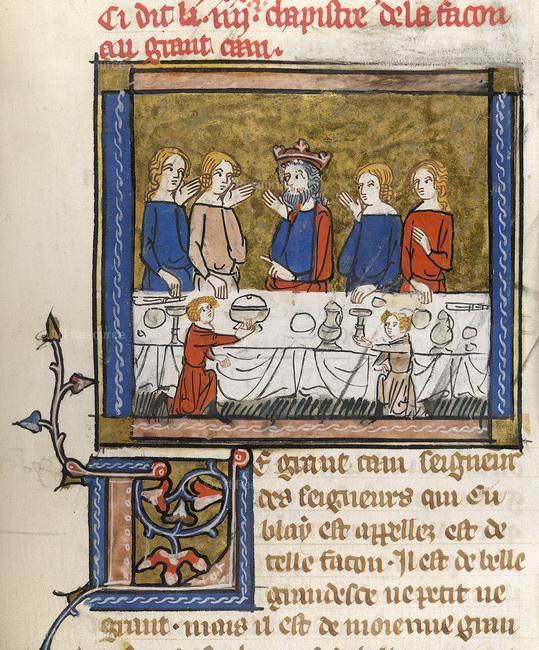 Ci dit li .iiij. chapistre de la facon
au grant cam.
LE grant cam seigneur
des seigneurs qui Cu
blay est appellez est de
telle facon. Il est de belle
grandesce ne petit ne
grant. mais il est de moienne gran